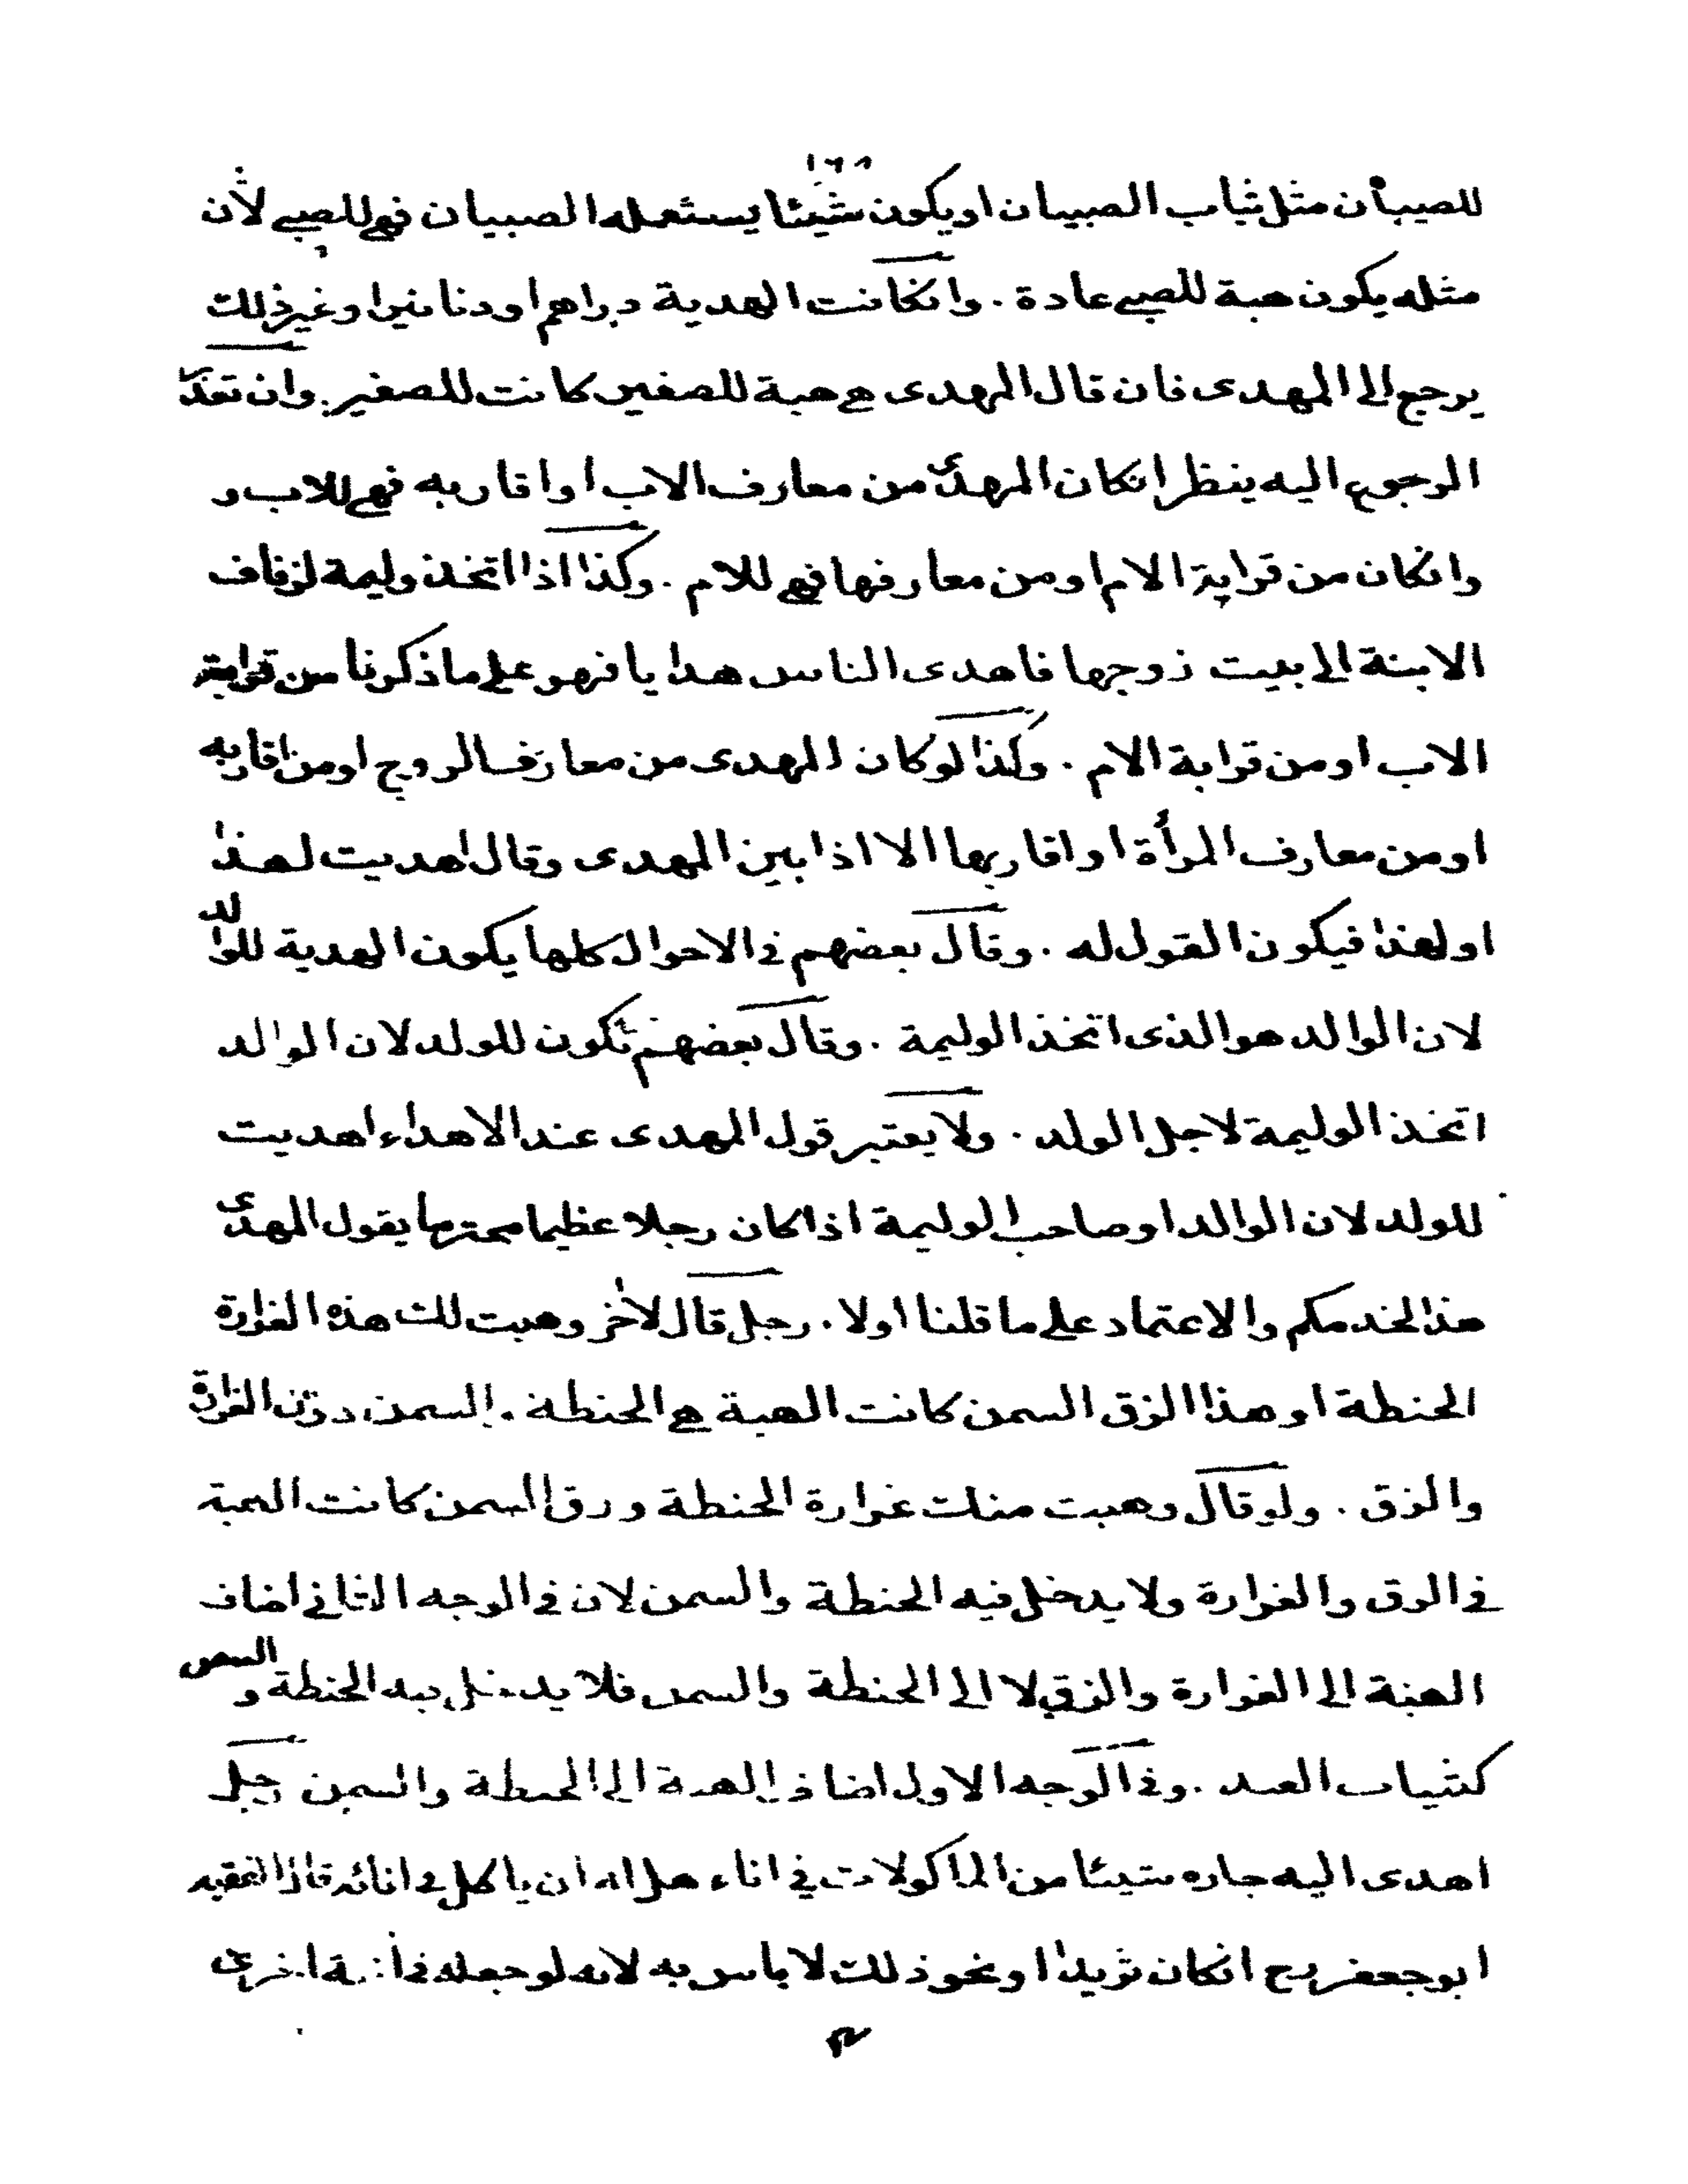 ١٦٨
للصبيان مثل ثياب الصبيان او يكون شيئا يستعمله الصبيان فهي للصبي لأن
مثله يكون هبة للصبي عادة . وانكانت الهدية دراهم او دنانيرا وغير ذلك
يرجع الى المهدى فان قال المهدى هي هبة للصغير كانت للصغير . وان تعذر
الرجوع اليه ينظر انكان المهدى من معارف الاب او اقاربه فهي للاب و
وانكان من قرابة الام او من معارفها فهي للام . وكذا اذا اتخذ وليمة لزفاف
الابنة الى بيت زوجها فاهدى الناس هدايا فهو على ما ذكرنا من قرابة
الاب او من قرابة الام . وكذا لو كان المهدى من معارف الزوج او من اقاربه
او من معارف المرأة او اقاربها الا اذا بين المهدى وقال اهديت لهذا
او لهذا فيكون القول له . وقال بعضهم في الاحوال كلها يكون الهدية للوالد
لان الوالد هو الذى اتخذ الوليمة . وقال بعضهم تكون للولد لان الوالد
اتخذ الوليمة لاجل الولد . ولا يعتبر قول المهدى عند الاهداء اهديت
للولد لان الوالد او صاحب الوليمة اذا كان رجلا عظيما محترما يقول المهدى
هذا لخدمكم والاعتماد على ما قلنا اولا . رجل قال لآخر وهبت لك هذه الغرارة
الحنطة او هذا الزق السمن كانت الهبة هي الحنطة والسمن دون الغرارة
والزق . ولو قال وهبت منك غرارة الحنطة وزق السمن كانت الهبة
في الزق والغرارة ولا يدخل فيه الحنطة والسمن لان في الوجه الثاني اضاف
الهبة الى الغرارة والزق لا الى الحنطة والسمن فلا يدخل فيه الحنطة والسمن
كثياب العبد . وفي الوجه الاول اضاف الهبة الى الحنطة والسمن رجل
اهدى اليه جاره شيئا من الماكولات في اناء هل له ان ياكل في انائه قال الفقيه
ابو جعفر رح انكان ثريدا او نحو ذلك لا باس به لانه لو جعله في آنية اخرى